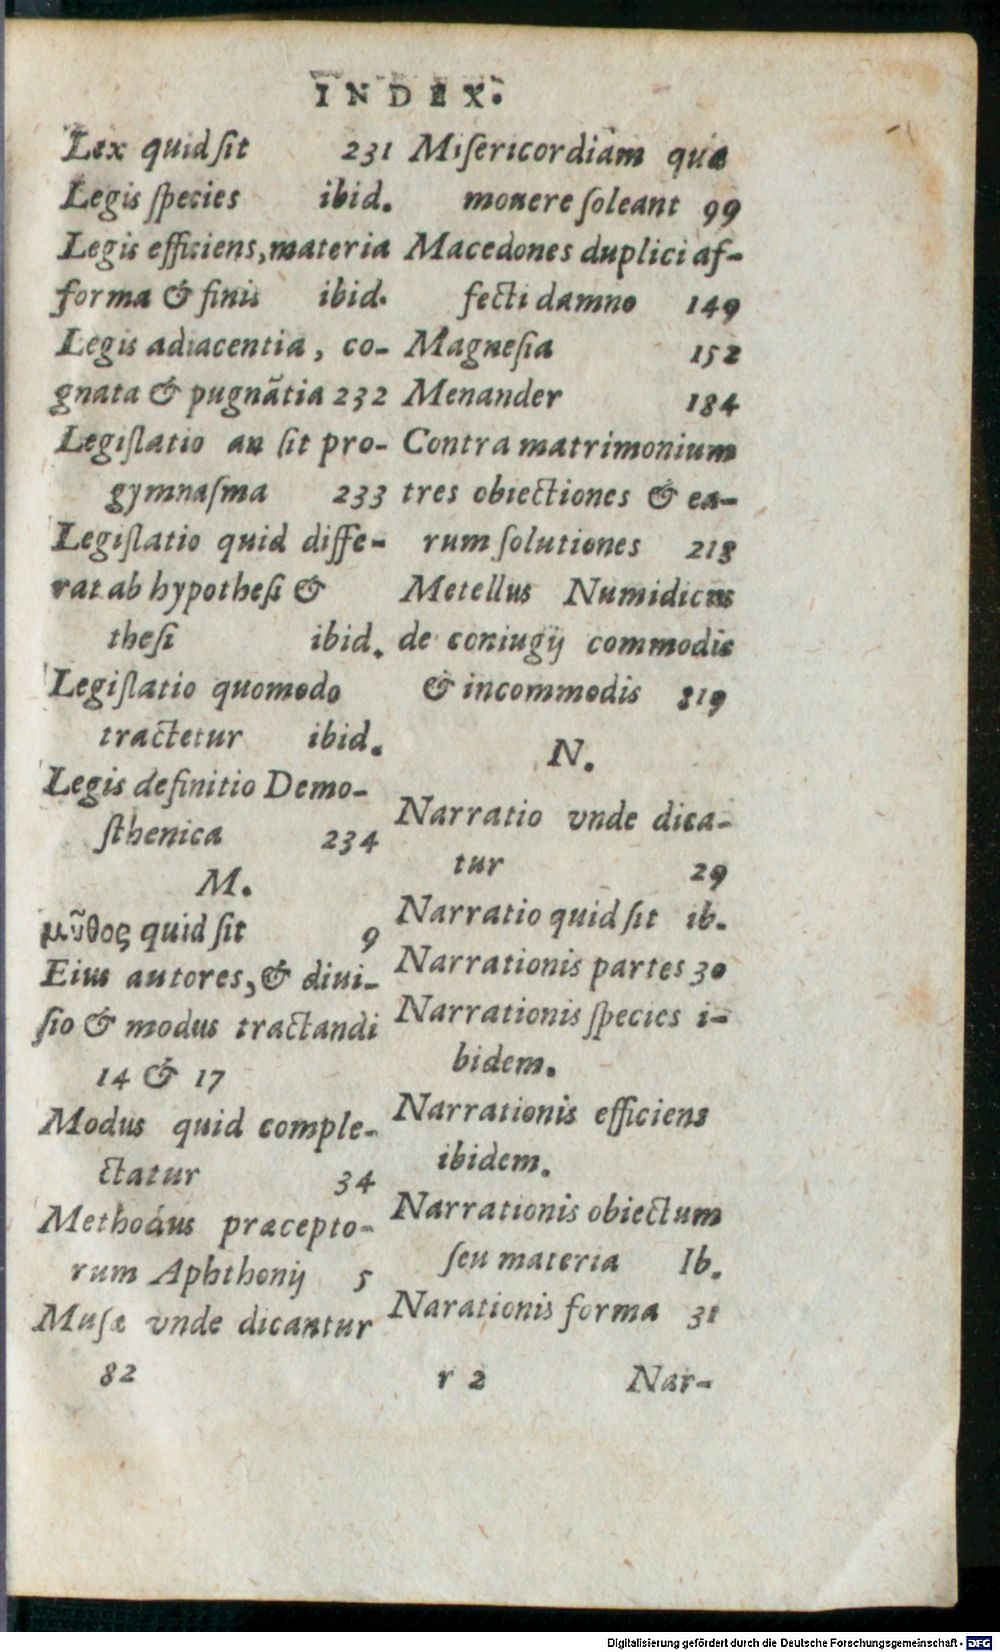 INDEX.
Lex quid ſit 231
Legis ſpecies ibid.
Legis efficiens, materia
forma & finis ibid.
Legis adiacentia, co-
gnata & pugnãtia 232
Legiſlatio an ſit pro-
gymnaſma 233
Legiſlatio quid diffe-
rat ab hypotheſi &
theſi ibid.
Legiſlatio quomodo
tractetur ibid.
Legis definitio Demo-
ſthenica 234
M.
μῦθος quid ſit 9
Eius autores, & diui-
ſio & modus tractandi
14 & 17
Modus quid comple-
ctatur 34
Methodus præcepto-
rum Aphthonij 5
Muſæ vnde dicantur
82
Miſericordiam quæ
mouere ſoleant 99
Macedones duplici af-
fecti damno 149
Magneſia 152
Menander 184
Contra matrimonium
tres obiectiones & ea-
rum ſolutiones 218
Metellus Numidicus
de coniugij commodis
& incommodis 819
N.
Narratio vnde dica-
tur 29
Narratio quid ſit ib.
Narrationis partes 30
Narrationis ſpecies i-
bidem.
Narrationis efficiens
ibidem.
Narrationis obiectum
ſeu materia Ib.
Narationis forma 31
r 2 Nar-
Digitalisierung gefördert durch die Deutsche Forschungsgemeinschaft - DFG